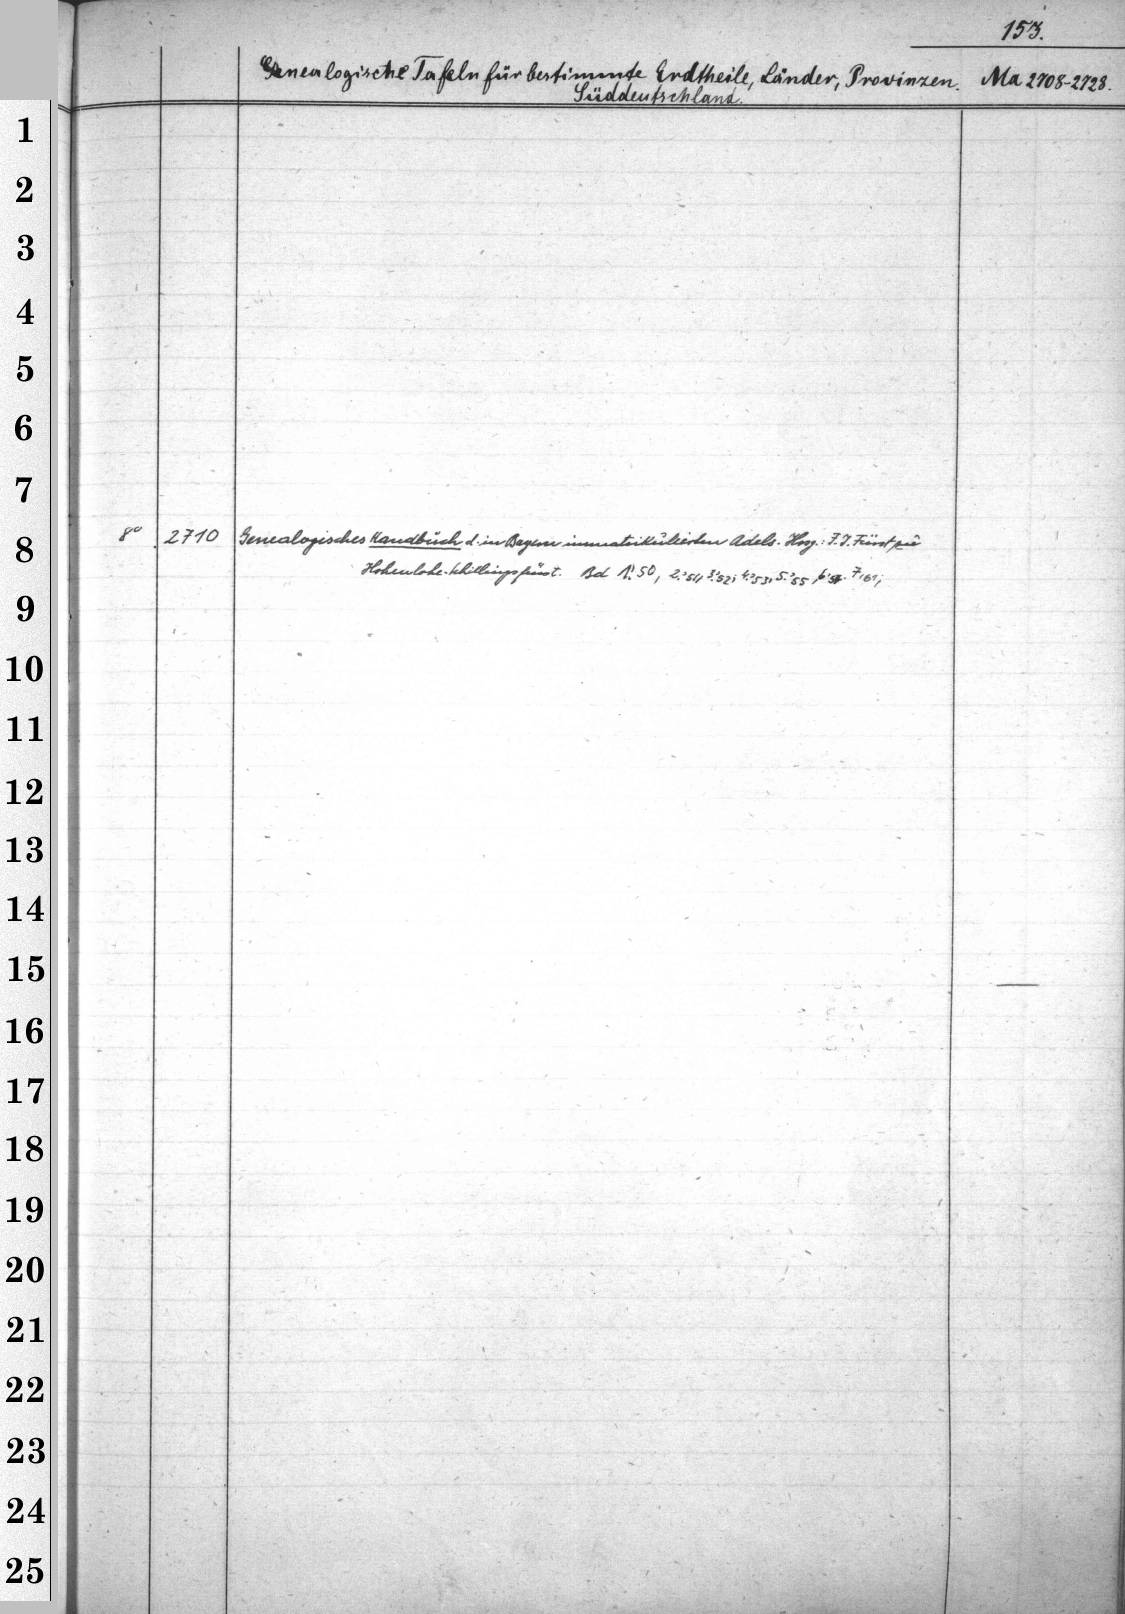 153.
Genealogische Tafeln für bestimmte Erdtheile, Länder, Provinzen. Ma 2708-2728.
Süddeutschland.
1
2
3
4
5
6
7
8° 2710 Genealogisches Handbuch d. in Bayern immatrikulierten Adels. Hrsg.: F. J. Fürst zu
8
Hohenlohe-Schillingsfürst. Bd 1.'50, 2.'51, 3.'52; 4.'53, 5.'55, 6.'57. 7,'61;
9
10
11
12
13
14
15
16
17
18
19
20
21
22
23
24
25